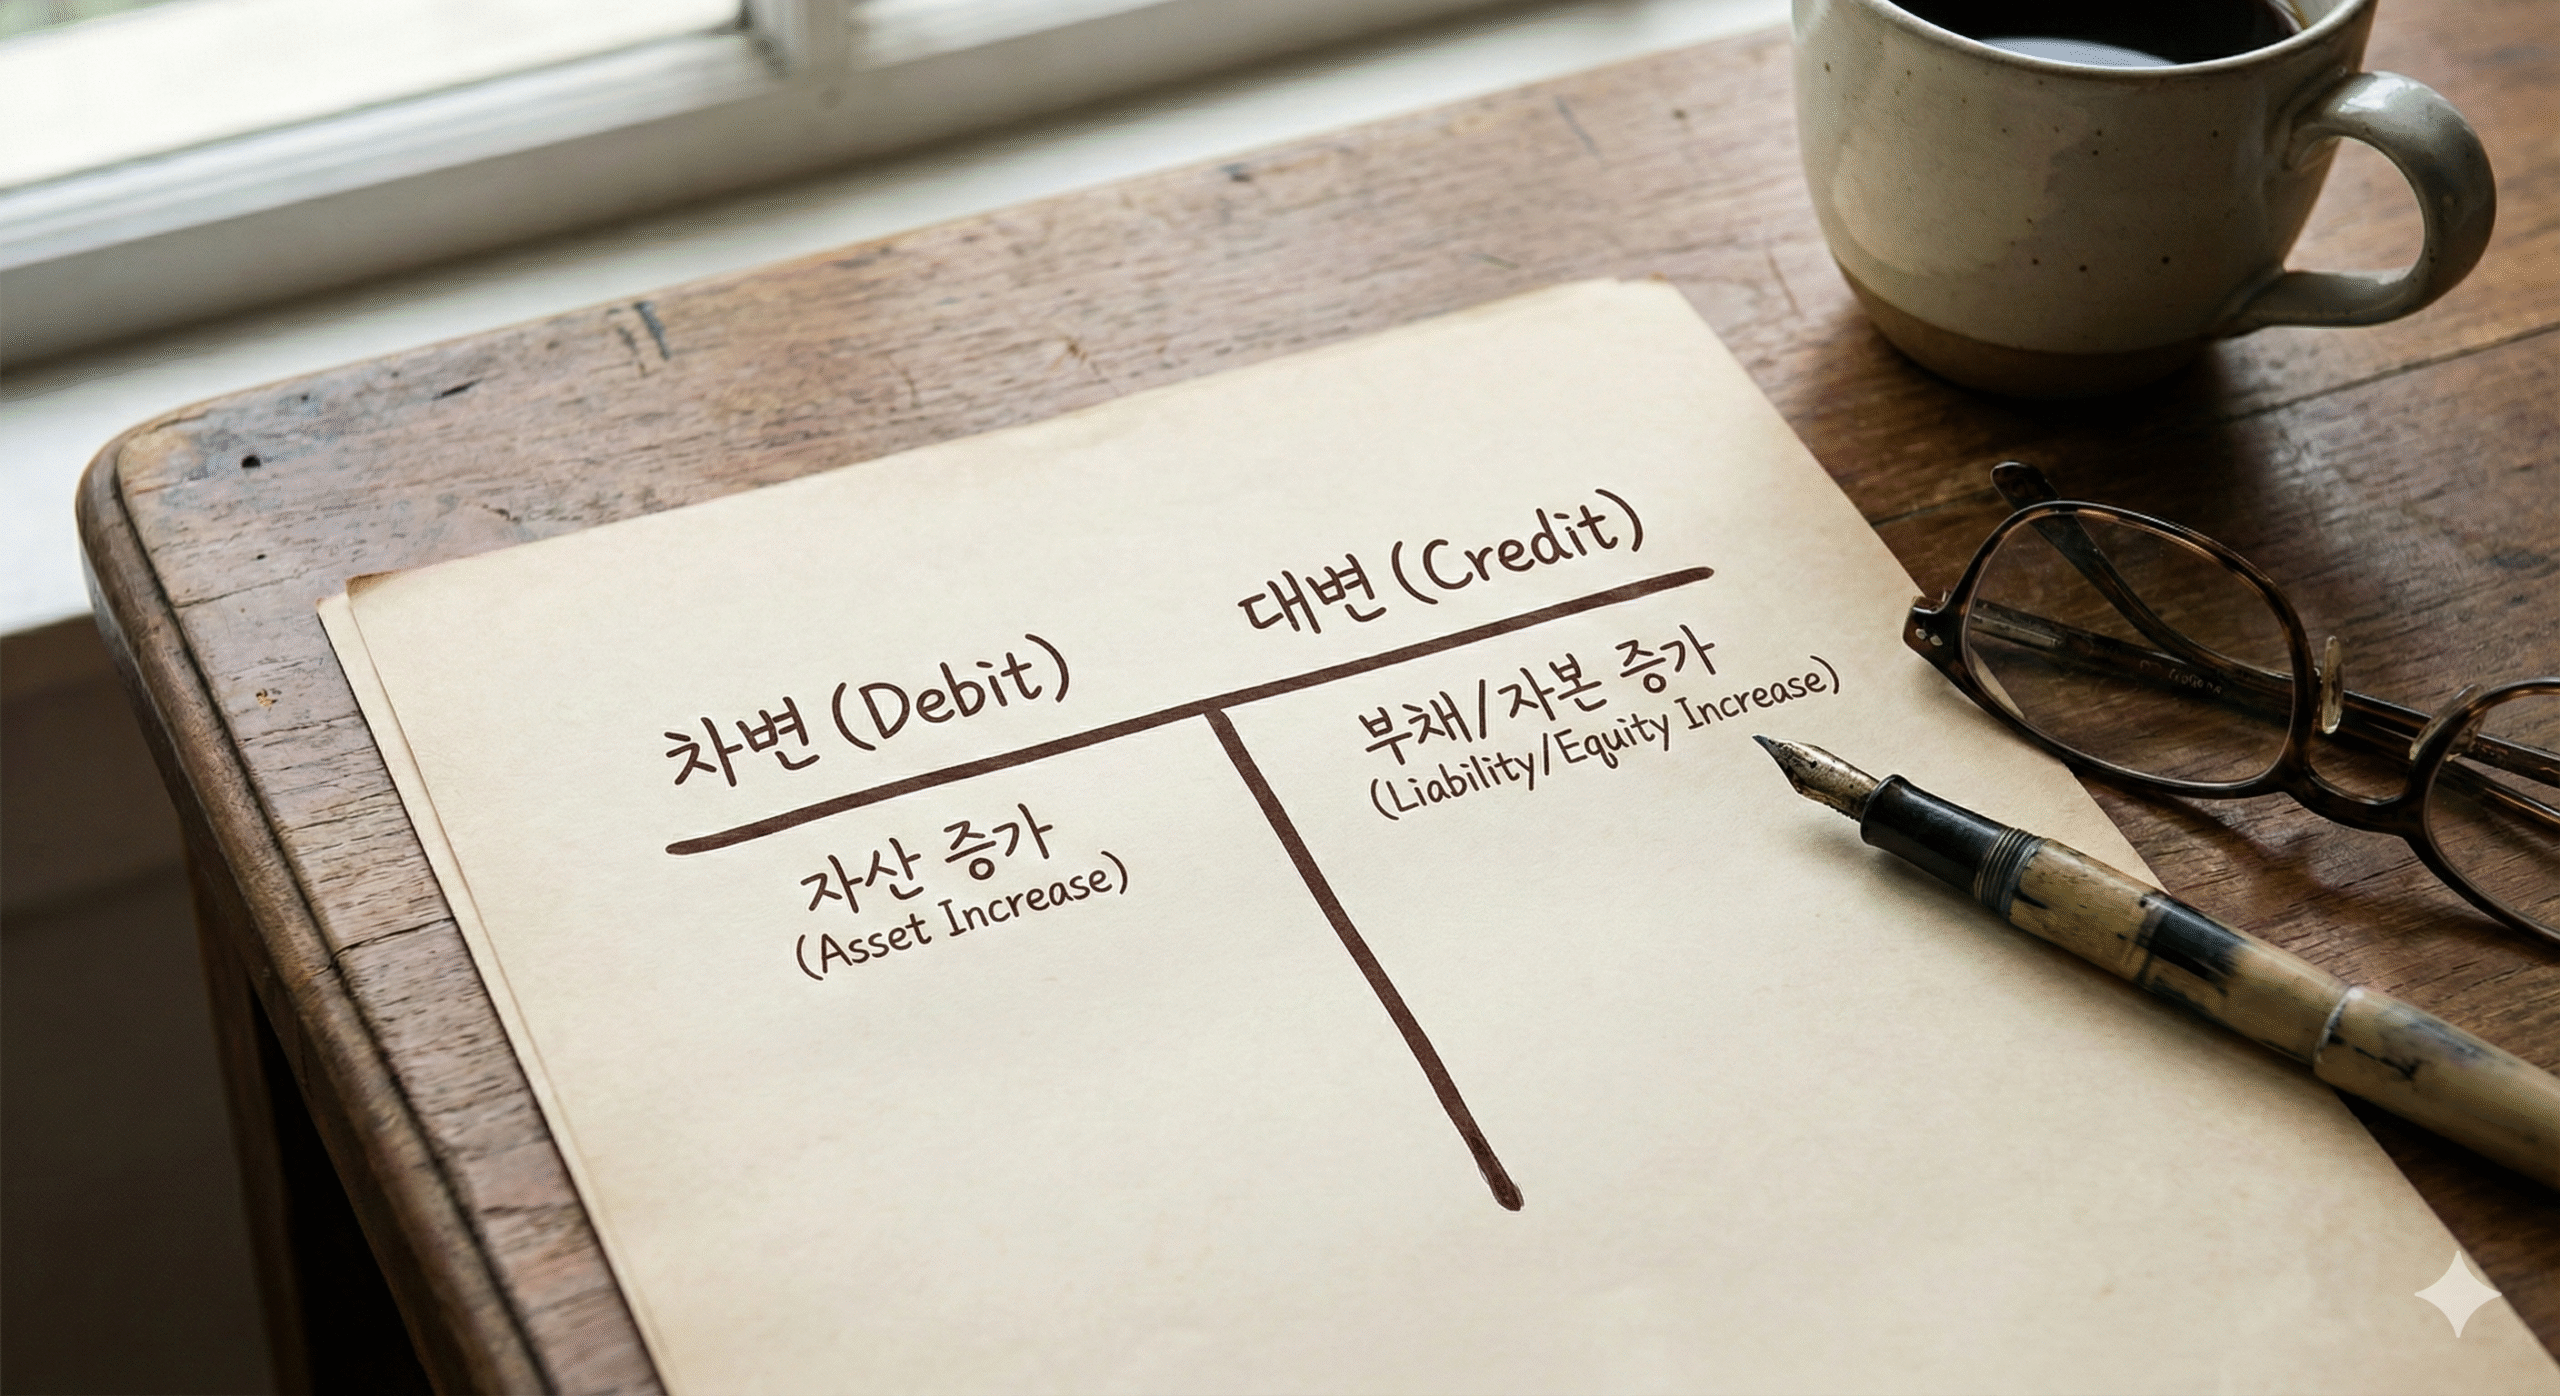 차변 (Debit)
대변 (Credit)
자산 증가
(Asset Increase)
부채/자본 증가
(Liability/Equity Increase)